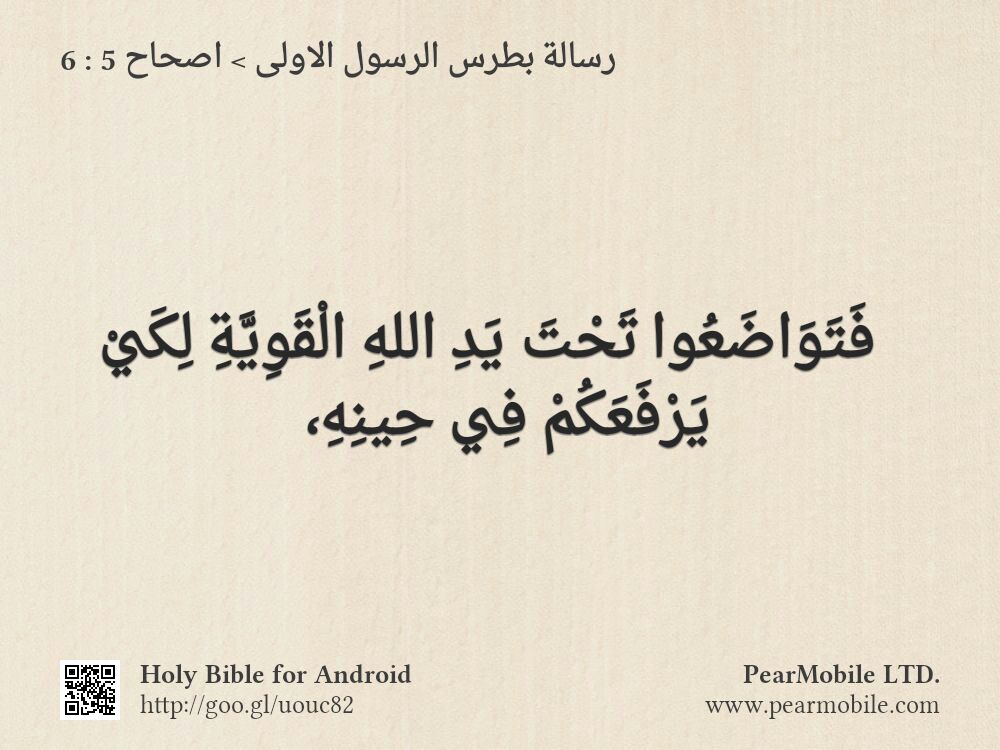 رسالة بطرس الرسول الاولى > اصحاح 5 : 6
فَتَوَاضَعُوا تَحْتَ يَدِ اللهِ الْقَوِيَّةِ لِكَيْ
يَرْفَعَكُمْ فِي حِينِهِ،
Holy Bible for Android
http://goo.gl/uouc82
PearMobile LTD.
www.pearmobile.com